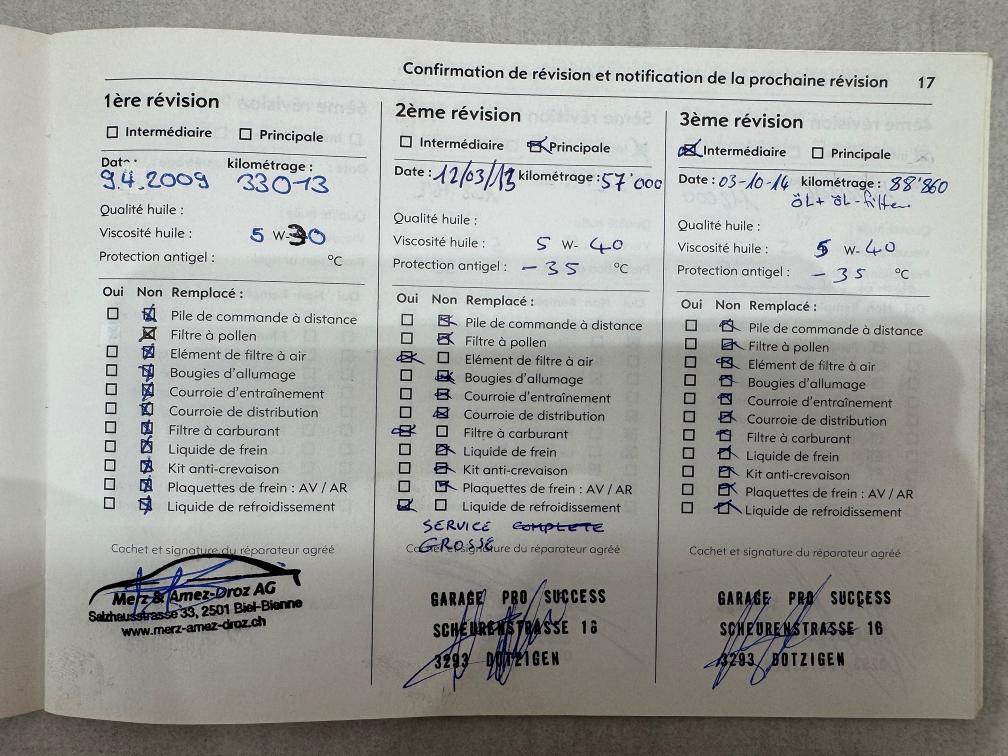 Confirmation de révision et notification de la prochaine révision 17
1ère révision
Intermédiaire Principale
Date : kilométrage :
9.4.2009 33013
Qualité huile :
Viscosité huile : 5 W-30
Protection antigel : °C
Oui Non Remplacé :
Pile de commande à distance
Filtre à pollen
Elément de filtre à air
Bougies d'allumage
Courroie d'entraînement
Courroie de distribution
Filtre à carburant
Liquide de frein
Kit anti-crevaison
Plaquettes de frein : AV / AR
Liquide de refroidissement
Cachet et signature du réparateur agréé
Merz & Amez-Droz AG
Salzhausstrasse 33, 2501 Biel-Bienne
www.merz-amez-droz.ch
2ème révision
Intermédiaire Principale
Date : 12/03/13 kilométrage : 57'000
Qualité huile :
Viscosité huile : 5 W- 40
Protection antigel : - 35 °C
Oui Non Remplacé :
Pile de commande à distance
Filtre à pollen
Elément de filtre à air
Bougies d'allumage
Courroie d'entraînement
Courroie de distribution
Filtre à carburant
Liquide de frein
Kit anti-crevaison
Plaquettes de frein : AV / AR
Liquide de refroidissement
SERVICE COMPLETE
GROSSE
Cachet et signature du réparateur agréé
GARAGE PRO SUCCESS
SCHEURENSTRASSE 16
3293 DOTZIGEN
3ème révision
Intermédiaire Principale
Date : 03-10-14 kilométrage : 88'860
öL + öL-filter
Qualité huile :
Viscosité huile : 5 W- 40
Protection antigel : - 35 °C
Oui Non Remplacé :
Pile de commande à distance
Filtre à pollen
Elément de filtre à air
Bougies d'allumage
Courroie d'entraînement
Courroie de distribution
Filtre à carburant
Liquide de frein
Kit anti-crevaison
Plaquettes de frein : AV / AR
Liquide de refroidissement
Cachet et signature du réparateur agréé
GARAGE PRO SUCCESS
SCHEURENSTRASSE 16
3293 DOTZIGEN